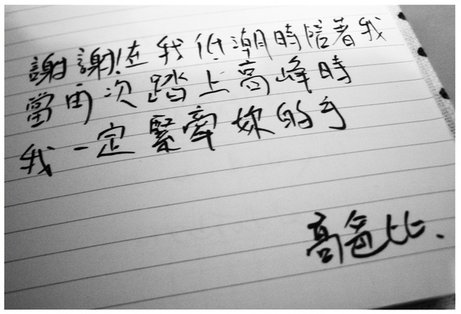 謝謝!在我低潮時陪著我
當再次踏上高峰時
我一定緊牽妳的手
高爸比、